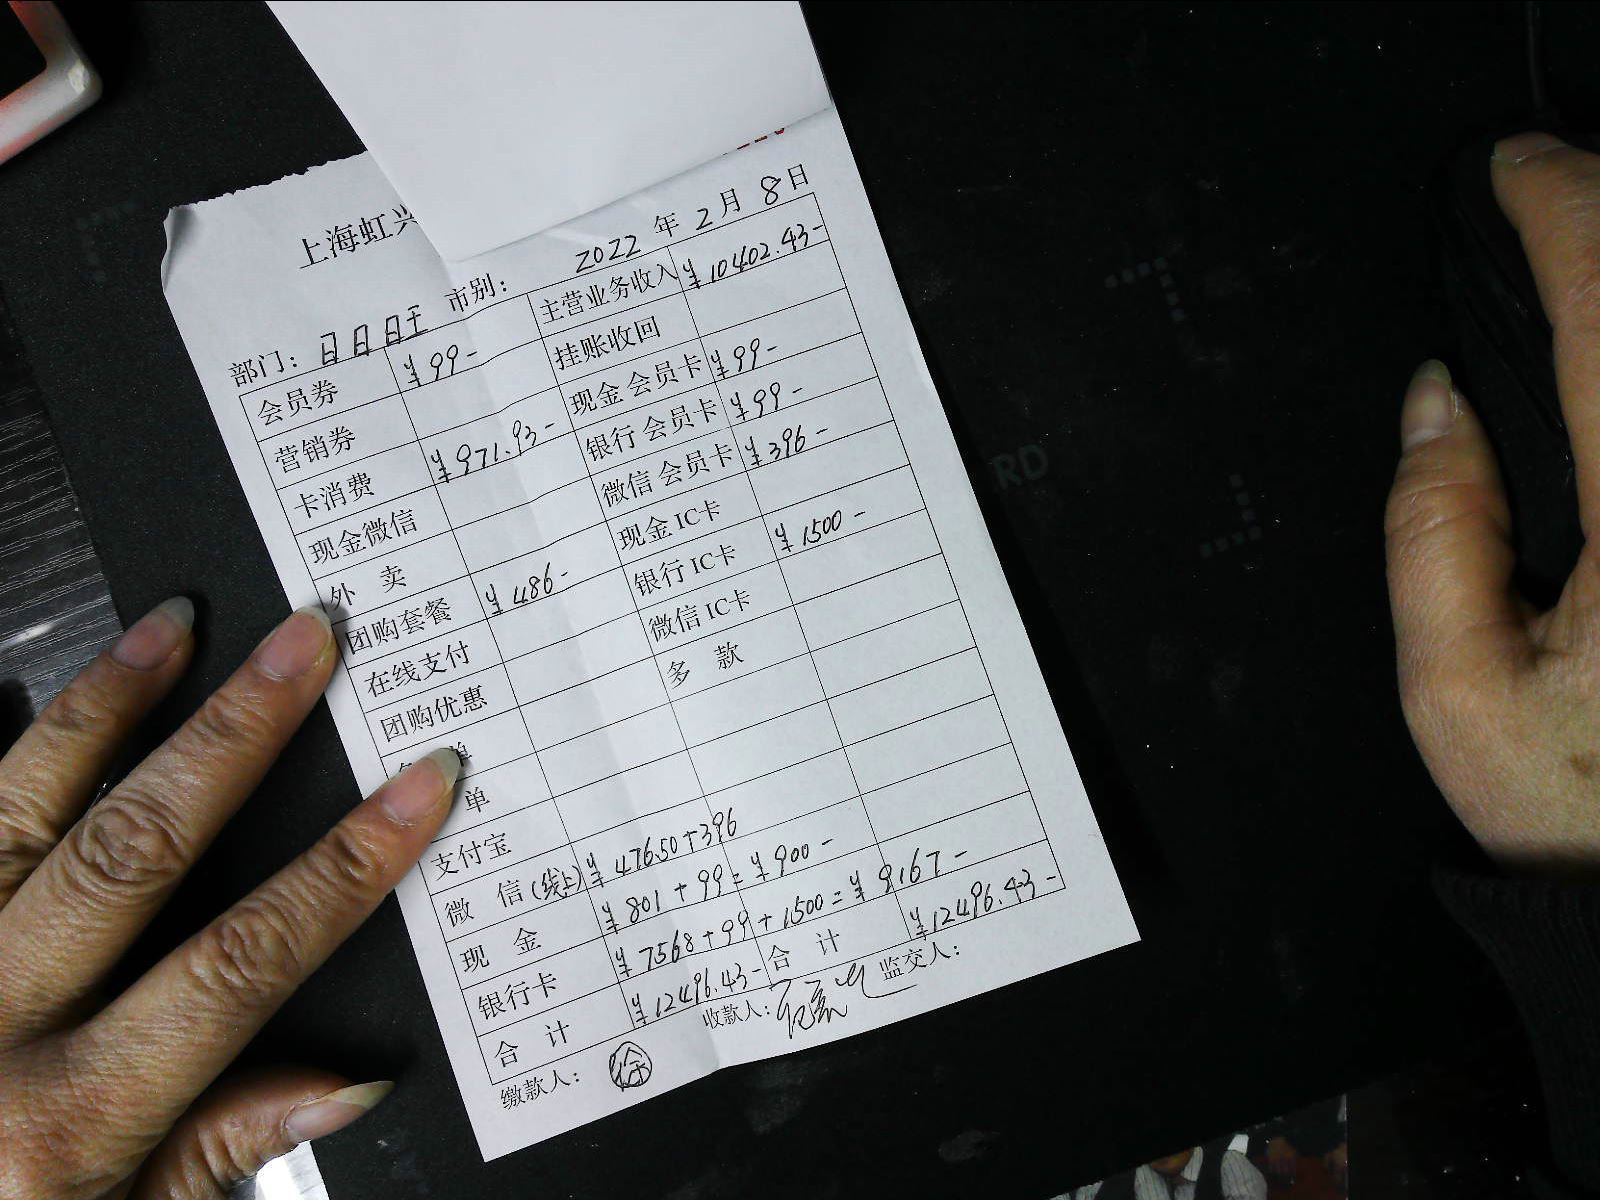 上海虹兴
2022 年 2 月 8 日
部门: 日日日王 市别:
会员券 ¥99- 主营业务收入 ¥10402.43-
营销券 挂账收回
卡消费 ¥971.93- 现金 会员卡 ¥99-
现金微信 银行 会员卡 ¥99-
外 卖 微信 会员卡 ¥396-
团购套餐 ¥486- 现金 IC卡
在线支付 银行 IC卡 ¥1500-
团购优惠 微信 IC卡
单 多 款
单
支付宝
微 信(线上) ¥476.50+396
现 金 ¥801+99=¥900-
银行卡 ¥7568+99+1500=¥9167-
合 计 ¥12496.43- 合 计 ¥12496.43-
缴款人: 徐 收款人: 监交人:
RD